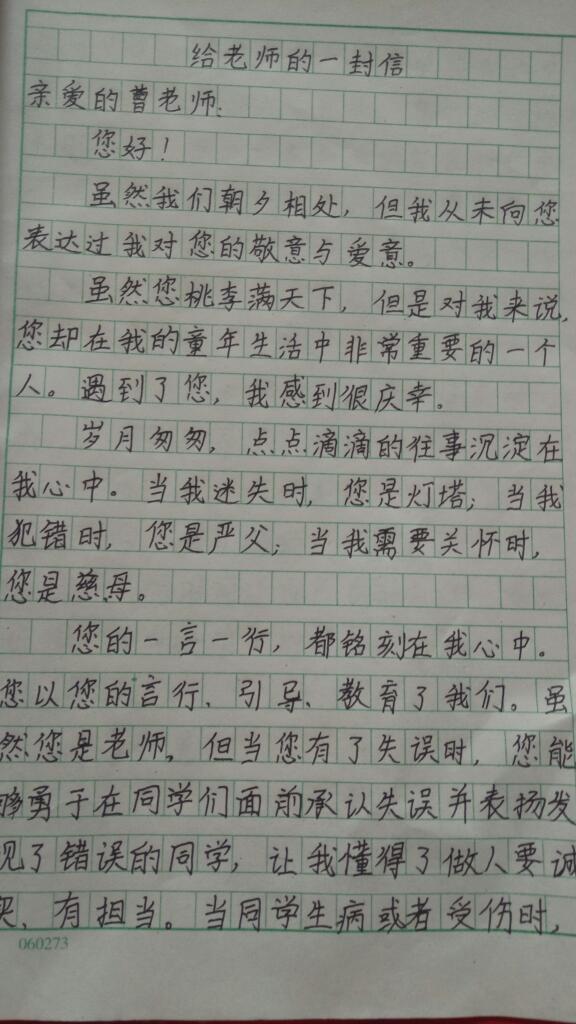 给老师的一封信
亲爱的曹老师:
您好!
虽然我们朝夕相处,但我从未向您
表达过我对您的敬意与爱意。
虽然您桃李满天下,但是对我来说,
您却在我的童年生活中非常重要的一个
人。遇到了您,我感到很庆幸。
岁月匆匆,点点滴滴的往事沉淀在
我心中。当我迷失时,您是灯塔;当我
犯错时,您是严父;当我需要关怀时,
您是慈母。
您的一言一行,都铭刻在我心中。
您以您的言行、引导、教育了我们。虽
然您是老师,但当您有了失误时,您能
够勇于在同学们面前承认失误并表扬发
现了错误的同学,让我懂得了做人要诚
实、有担当。当同学生病或者受伤时,
060273